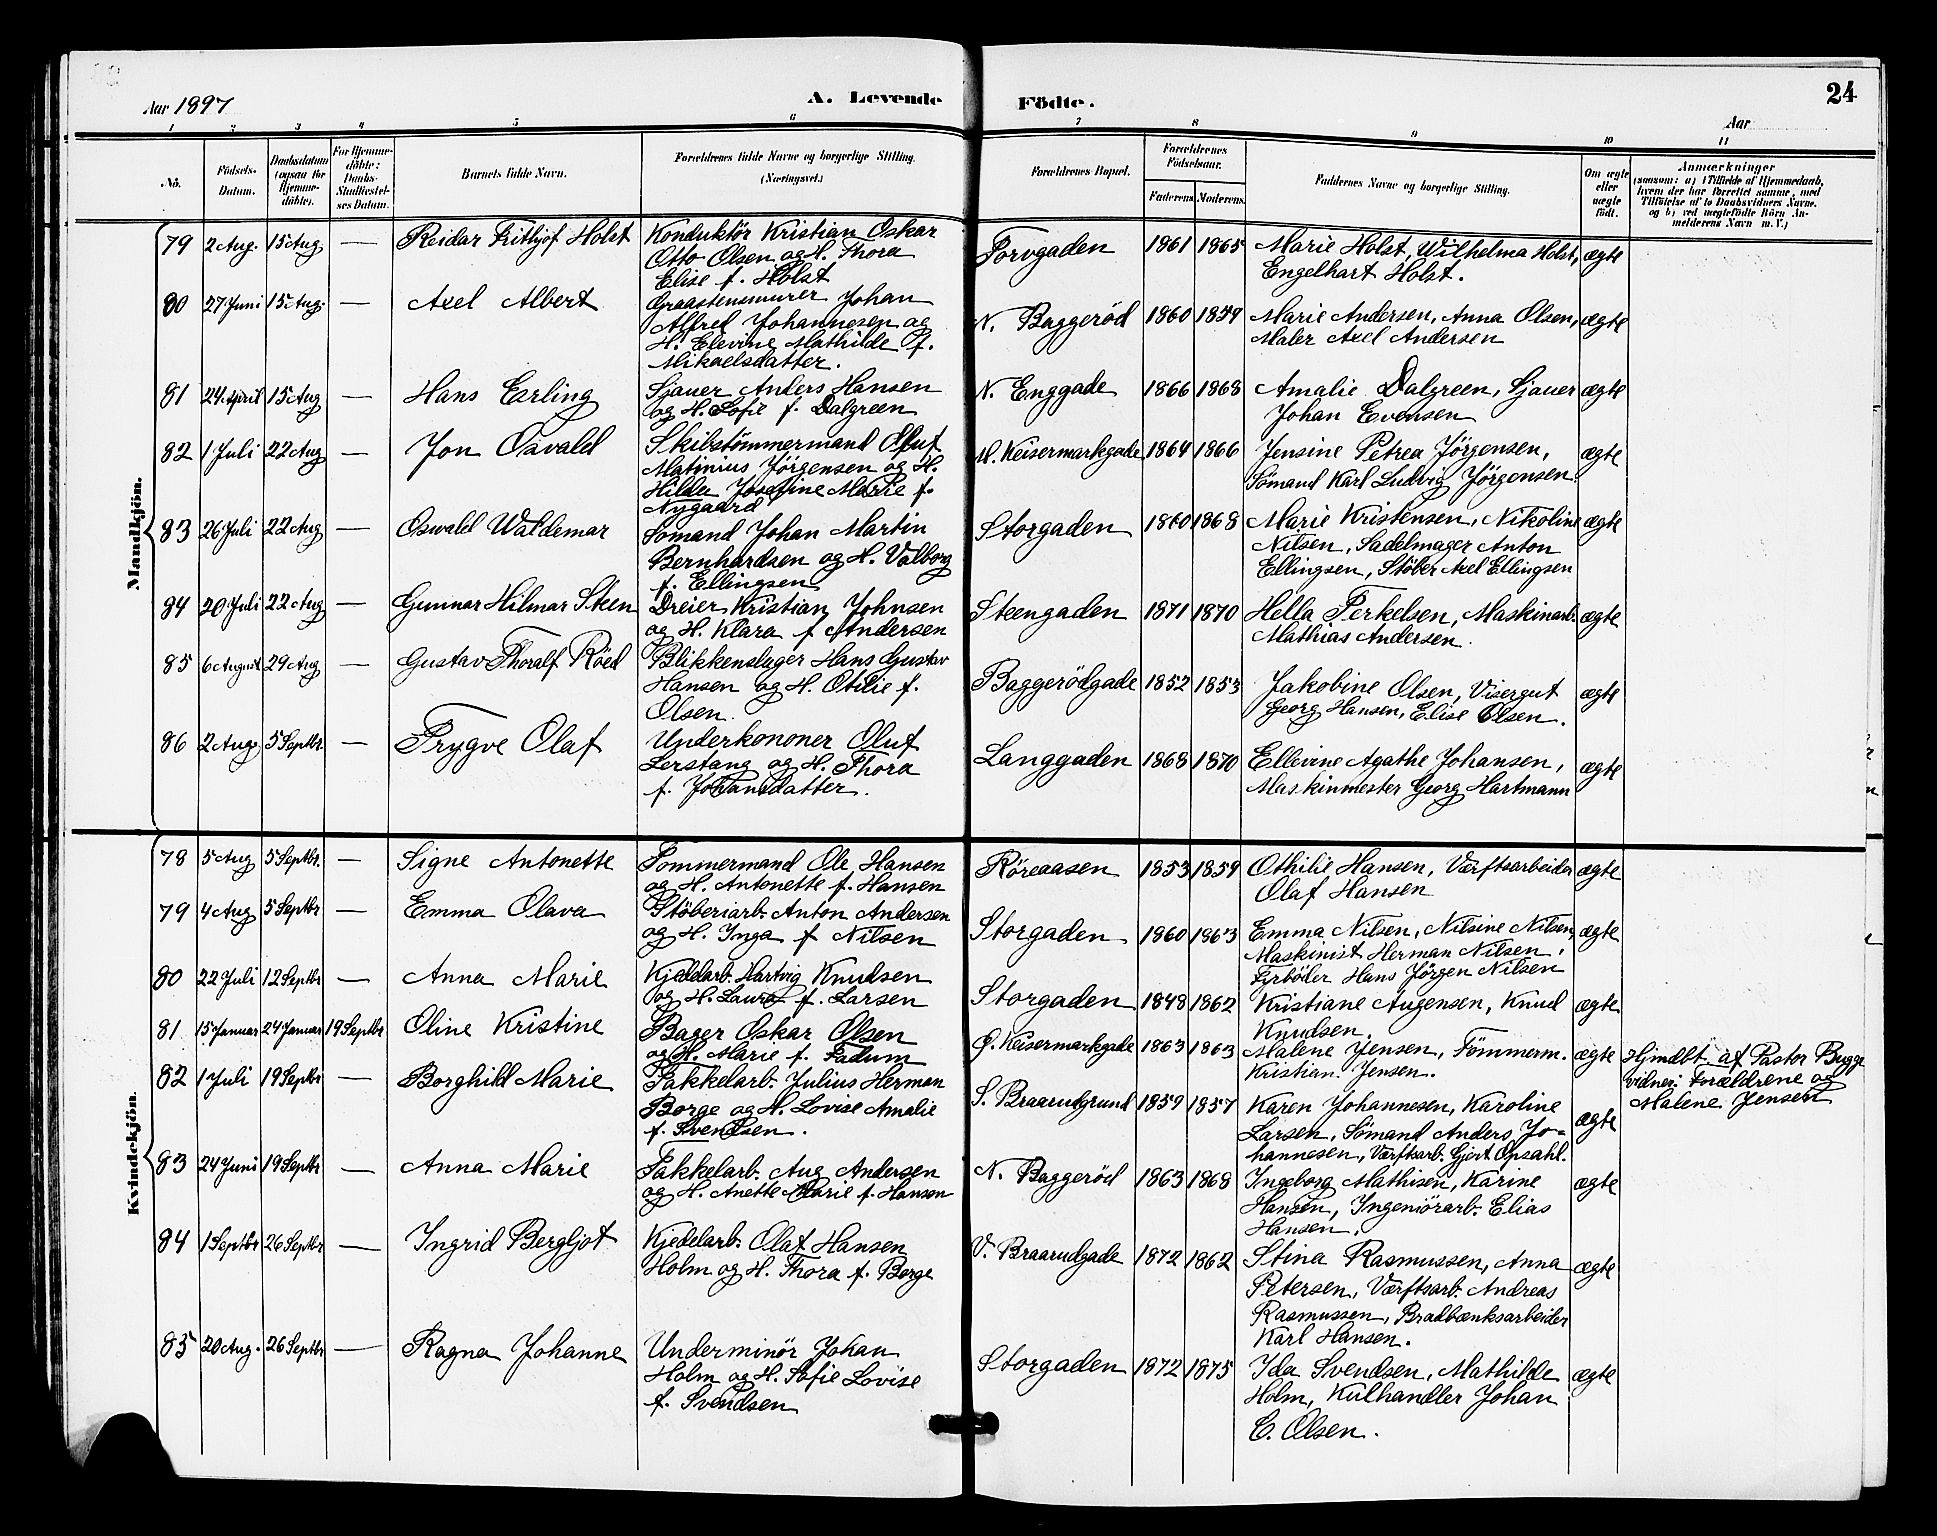 Aar 1897
A. Levende Födte.
24
Aar
1 2 3 4 5 6 7 8 9 10 11
No.
Födsels-
Datum.
Daabsdatum
(ogsaa for
Hjemme-
döbte).
For Hjemme-
döbte:
Daabs-
Stadfæstel-
ses Datum.
Barnets fulde Navn.
Forældrenes fulde Navne og borgerlige Stilling.
(Næringsvei.)
Forældrenes Bopæl.
Forældrenes
Födselsaar.
Faderens Moderens
Faddernes Navne og borgerlige Stilling.
Om ægte
eller
uægte
födt.
Anmærkninger
(saasom: a) i Tilfælde af Hjemmedaab,
hvem der har forrettet samme, med
Tilföielse af to Daabsvidners Navne,
og b) ved uægtefödte Börn An-
melderens Navn m. V.)
Mandkjön.
79 2 Aug. 15 Aug — Reidar Frithjof Holst
Konduktör Kristian Oskar
Otto Olsen og H. Thora
Elise f. Holst
Torvgaden 1861 1865
Marie Holst, Wilhelma Holst,
Engelhart Holst.
ægte
80 27 Juni 15 Aug. — Axel Albert
Graastensmurer Johan
Alfred Johannesen og
H. Elevine Mathilde f.
Mikaelsdatter.
N. Baggeröd 1860 1859
Marie Andersen, Anna Olsen,
Maler Axel Andersen
ægte
81 24 April 15 Aug — Hans Erling
Sjauer Anders Hansen
og H. Sofie f. Dalgreen
N. Enggade 1866 1868
Amalie Dalgreen, Sjauer
Johan Evensen
ægte
82 1 Juli 22 Aug — Jon Osvald
Skibstömmermand Oluf
Matinius Jörgensen og H.
Hilda Josefine Marie f.
Nygaard
M. Keisermarkgade 1864 1866
Jensine Petrea Jörgensen,
Sömand Karl Ludvig Jörgensen.
ægte
83 26 Juli 22 Aug — Oswald Waldemar
Sömand Johan Martin
Bernhardsen og H. Valborg
f. Ellingsen
Storgaden 1860 1868
Marie Kristensen, Nikoline
Nilsen, Sadelmager Anton
Ellingsen, Stöber Axel Ellingsen
ægte
84 20 Juli 22 Aug — Gunnar Hilmar Steen
Dreier Kristian Johnsen
og H. Klara f. Andersen
Steengaden 1871 1870
Hella Terkelsen, Maskinarb.
Mathias Andersen.
ægte
85 6 August 29 Aug — Gustav Thoralf Röed
Blikkenslager Hans Gustav
Hansen og H. Otilie f.
Olsen.
Baggerödgade 1852 1853
Jakobine Olsen, Visergut
Georg Hansen, Elise Olsen.
ægte
86 2 Aug. 5 Septbr. — Trygve Olaf
Underkononer Oluf
Lerstang og H. Thora
f. Johansdatter.
Langgaden 1868 1870
Ellevine Agathe Johansen,
Maskinmester Georg Hartmann
ægte
Kvindekjön.
78 5 Aug 5 Septbr. — Signe Antonette
Tømmermand Ole Hansen
og H. Antonette f. Hansen
Röreaasen 1853 1859
Othilie Hansen, Værftsarbeider
Olaf Hansen
ægte
79 4 Aug 5 Septbr — Emma Olava
Støberiarb. Anton Andersen
og H. Inga f Nilsen
Storgaden 1860 1863
Emma Nilsen, Nilsine Nilsen,
Maskinist Herman Nilsen,
Fyrböder Hans Jörgen Nilsen
ægte
80 22 Juli 12 Septbr — Anna Marie
Kjedelarb. Hartvig Knudsen
og H. Laura f. Larsen
Storgaden 1848 1862
Kristiane Augensen, Knud
Knudsen,
ægte
81 15 Januar 24 Januar 19 Septbr Oline Kristine
Bager Oskar Olsen
og H. Marie f. Fadum
Ø. Keisermarkgade 1863 1863
Malene Jensen, Tömmerm.
Kristian Jensen.
ægte
Hjmdbt af Pastor Bugge
vidner: Forældrene og
Malene Jensen
82 1 Juli 19 Septbr — Borghild Marie
Takkelarb. Julius Herman
Borge og H. Lovise Amalie
f. Svendsen.
S. Braarudgrund 1859 1857
Karen Johannesen, Karoline
Larsen, Sömand Anders Jo-
hannesen, Værftsarb. Gjert Opsahl.
ægte
83 24 Juni 19 Septbr — Anna Marie
Takkelarb. Aug. Andersen
og H. Anette Marie f. Hansen
N. Baggeröd 1863 1868
Ingeborg Mathisen, Karine
Hansen, Ingeniörarb. Elias
Hansen.
ægte
84 1 Septbr 26 Septbr — Ingrid Bergljot
Kjedelarb. Olaf Hansen
Holm og H. Thora f. Borge
V. Braarudgade 1872 1862
Stina Rasmussen, Anna
Petersen, Værftsarb. Andreas
Rasmussen, Bradbænksarbeider
Karl Hansen.
ægte
85 20 Aug. 26 Septbr — Ragna Johanne
Underminör Johan
Holm og H. Sofie Lovise
f. Svendsen
Storgaden 1872 1875
Ida Svendsen, Mathilde
Holm, Kulhandler Johan
C. Olsen.
ægte